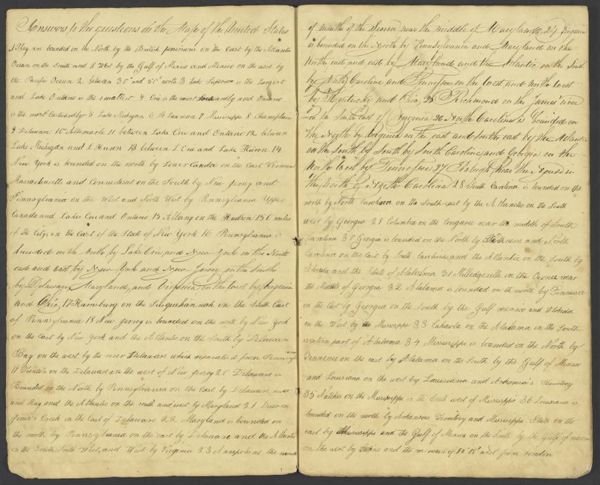 Answers to the questions on the Map of the United States
1 They are bounded on the North by the British provinces on the east by the Atlantic
Ocean on the South and S West by the Gulf of Mexico and Mexico on the west by
the Pacific Ocean 2 between 25 and 50 north 3 Lake Superior is the Largest
and Lake Ontario is the smallest 4 Erie is the most Southerdly and Ontario
is the most easterdly 5 Lake Michigan 6 St Lawrence 7 Mississippi 8 Champlain
9 Delaware 10 Albemarle 11 between Lake Erie and Ontario 12 between
Lake Michigan and L Huron 13 between L Erie and Lake Huron 14
New York is bounded on the north by Lower Canada on the East Vermont
Massachusetts and Connecticut on the South by New Jersey and
Pennsylvania on the West and North West by Pennsylvania Upper
Canada and Lakes Erie and Ontario 15 Albany on the Hudson 150 miles
of the City in the east of the State of New York 16 Pennsylvania is
bounded on the North by Lake Erie and New York on the North
east and east by New York and New Jersey on the South
by Delaware Maryland, and Virginia on the west by Virginia
and Ohio, 17 Harrisburg on the Susquehannah in the South East
of Pennsylvania 18 New Jersey is bounded on the north by New York
on the east by New York and the Atlantic on the South by Delaware
Bay on the west by the river Delaware which seperates it from Pennsyl
19 Trenton on the Delaware on the west of New Jersey 20 Delaware is
Bounded on the North by Pennsylvania on the East by Delaware river
and Bay and the Atlantic on the south and west by Maryland 21 Dover on
Jones's Creek in the East of Delaware 22 Maryland is bounded on
the north by Pennsylvania on the east by Delaware and the Atlantic
on the South South West, and West by Virginia 23 Annapolis on the
of mouth of the Severn near the middle of Maryland 24 Virginia
is bounded on the North by Pennsylvania and Maryland on the
North east and east by Maryland and the Atlantic on the South
by North Carolina and Tennessee on the west and north west
by Kentucky and Ohio 25 Richmond on the James river
in South East of Virginia 26 North Carolina is Bounded on
the North by Virginia on the east and south east by the Atlantic
on the South by South Carolina and Georgia on the
North west by Tennessee 27 Raleigh near the Neuse in
the North of North Carolina 28 South Carolina is bounded on the
north by North Carolina on the South east by the Atlantic on the South
west by Georgia 29 Columbia on the Congaree near middle of South
Carolina 30 Georgia is bounded on the North by Tennessee and North
Carolina on the east by South Carolina and the Atlantic on the South by
Florida and the State of Alabama 31 Milledgeville on the Oconee near
the Middle of Georgia 32 Alabama is bounded on the north by Tennessee
on the east by Georgia on the South by the Gulf mexico and Florida
on the West by Mississippi 33 Cahawba on the Alabama in the South
western part of Alabama 34 Mississippi is bounded on the North by
Tennessee on the east by Alabama on the South by the Gulf of Mexico
and Louisiana on the west by Louisiana and Arkansas Territory
35 Natches on the Mississippi in the South west of Mississippi 36 Louisiana is
bounded on the north by Arkansas Territory and Mississippi State on the
east by Mississippi and the Gulf of Mexico on the South by the Gulf of mexico
on the west by and the west from London